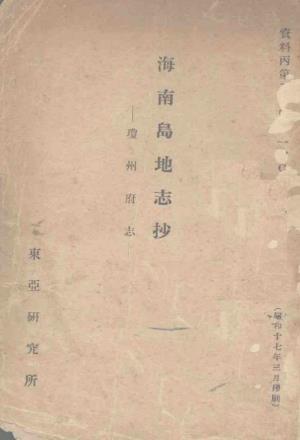 資料丙第
海南島地志抄
―瓊州府志―
東亞研究所
(昭和十七年三月印刷)